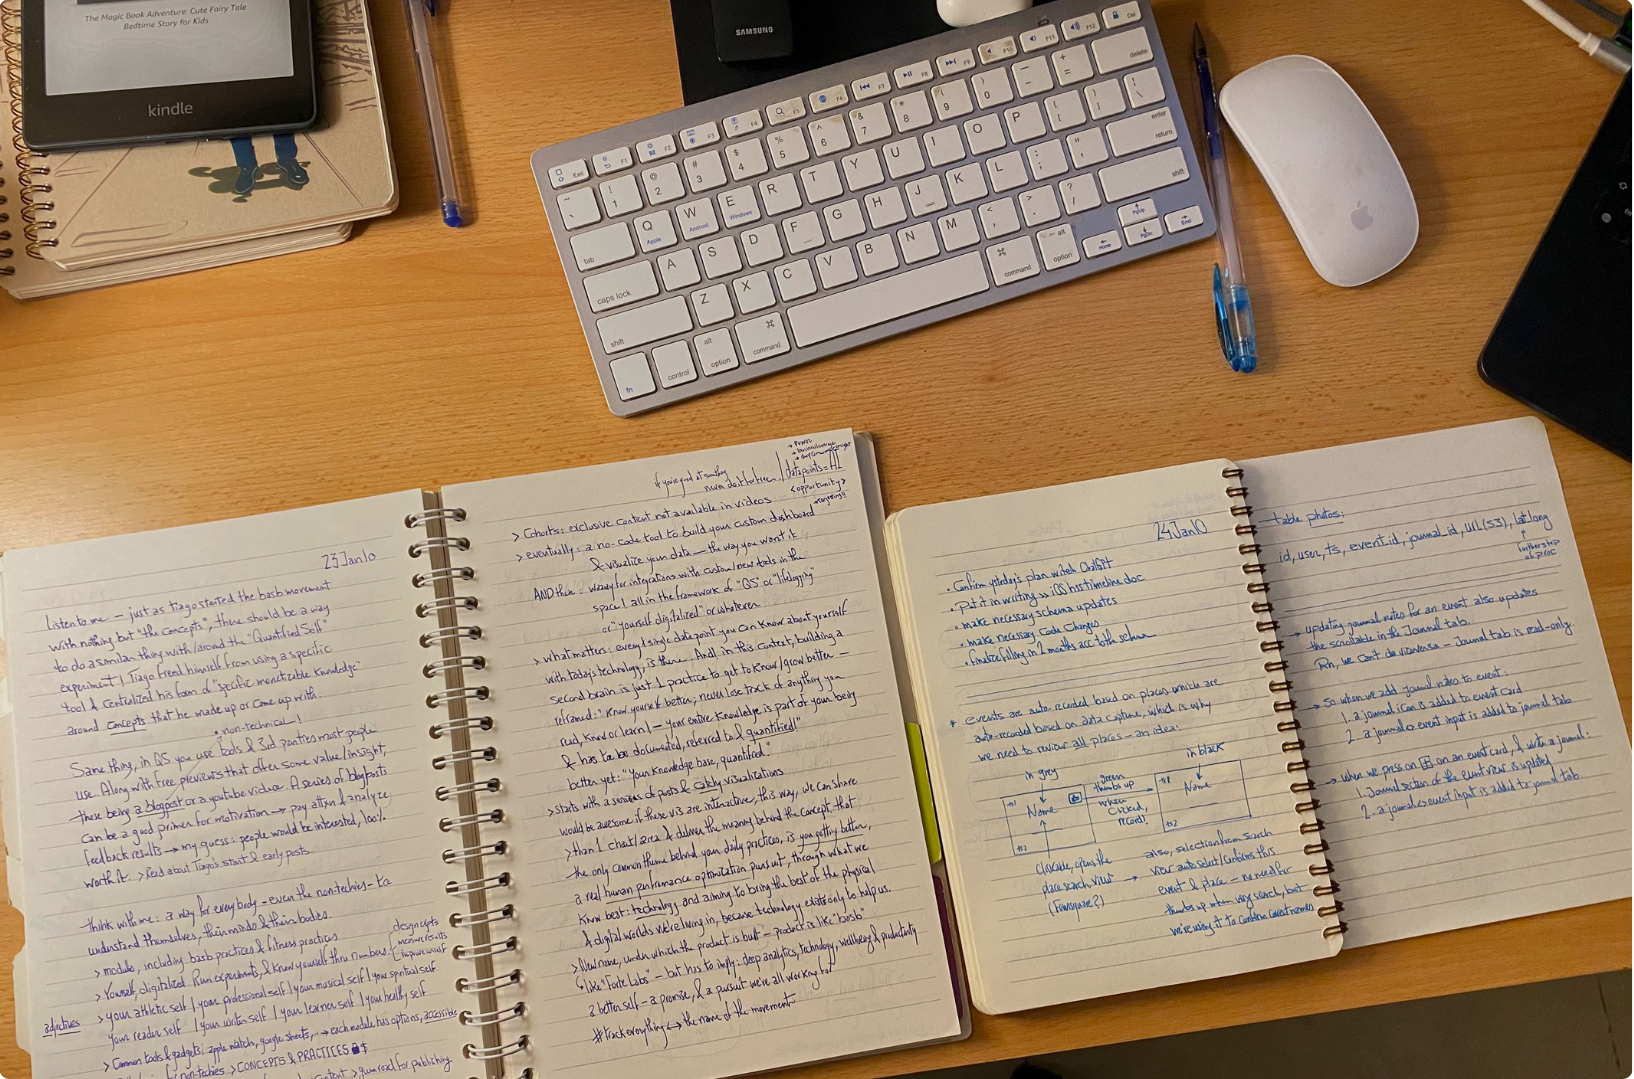 The Magic Book Adventure: Cute Fairy Tale
Bedtime Story for Kids
kindle
SAMSUNG
Esc F1 F2 F3 F4 F5 F6 F7 F8 F9 F10 F11 F12 Del
~ ` ! 1 @ 2 # 3 $ 4 % 5 ^ 6 & 7 * 8 ( 9 ) 0 _ - + = delete
tab Q Apple W Android E Windows R T Y U I O P { [ } ] | \
caps lock A S D F G H J K L : ; " ' enter return
shift Z X C V B N M < , > . ? / shift
fn control alt option command command alt option Home PgUp PgDn End
23 Jan 10
Listen to me — just as Tiago started the basb movement
with nothing but "the concepts", there should be a way
to do a similar thing with/around the "Quantified Self"
experiment! Tiago freed himself from using a specific
tool & centralized his form of "specific monetizable knowledge"
around concepts that he made up or came up with.
non-technical
Same thing, in QS you use tools & 3rd parties most people
use. Along with free previews that offer some value/insight,
these being a blogpost or a youtube video. A series of blogposts
can be a good primer for motivation → pay atten & analyze
feedback results → my guess: people would be interested, 100%
worth it. > Read about Tiago's start & early posts
think with me: a way for everybody - even the non-techies - to
understand themselves, their minds & their bodies.
> modules, including basb practices & fitness practices
> Yourself, digitalized. Run experiments, & know yourself thru numbers
design cepts
measure results
improve urself
adjectives
> your athletic self / your professional self / your musical self / your spiritual self
your reader self / your writer self / your learner self / your healthy self
> Common tools & gadgets: apple watch, google sheets, … → each module has options, accessible
for non-techies > CONCEPTS & PRACTICES
for publishing
if you're good at something
never do it for free
→ Power
datapoints = AI
<opportunity>
> Cohorts: exclusive content not available in videos
> eventually: a no-code tool to build your custom dashboard
& visualize your data — the way you want it
AND then: ready for integrations with custom/new tools in the
space / all in the framework of "QS" or "lifelogging"
or "yourself digitalized" or whatever
> what matters: every single data point you can know about yourself
with today's technology, is there. And, in this context, building a
second brain is just 1 practice to get to know/grow better —
reframed: "know yourself better; never lose track of anything you
read, know or learn! — your entire knowledge is part of your being
& has to be documented, referred to & quantified!"
better yet: "your knowledge base, quantified."
> starts with a series of posts & catchy visualizations
would be awesome if these vis are interactive, this way, we can share
> than 1 chart/area & deliver the meaning behind the concept. that
the only common theme behind your daily practices, is you getting better,
a real human performance optimization pursuit, through what we
know best: technology and aiming to bring the best of the physical
& digital worlds we're living in, because technology exists only to help us.
> New name, under which the product is built — product is like "basb"
like "Forte Labs" — but has to imply: deep analytics, technology, wellbeing & productivity
a better self — a promise, & a pursuit we're all working for
#trackeverything ↔ the name of the movement
24 Jan 10
• Confirm ysterday's plan witch ChatGPT
• Put it in writing → iOS hrs timeline doc
• make necessary schema updates
• make necessary Code Changes
• Finalize filling in 2 months acc. to the schema
* events are auto-recorded based on places, which are
auto-recorded based on data capture, which is why
we need to review all places — an idea:
in grey
green
thumbs up
in black
Name
when
clicked,
record!
Name
ts1
ts2
clickable, opens the
place search view
(Foursquare?)
also, selection from search
view auto select/confirms this
event & place — no need for
thumbs up when using search, but
we're using it to confirm correct names
table photos:
id, user, ts, event_id, journal_id, URL (S3), lat, long
further step
of proc
→ updating journal notes for an event also updates
the scrollable in the Journal tab.
Rn, we can't do viceversa — Journal tab is read-only.
→ So when we add journal notes to event:
1. a journal icon is added to event card
2. a journal event input is added to journal tab
→ when we press on + on an event card, & write a journal:
1. Journal section of the event view is updated
2. a journal event input is added to journal tab